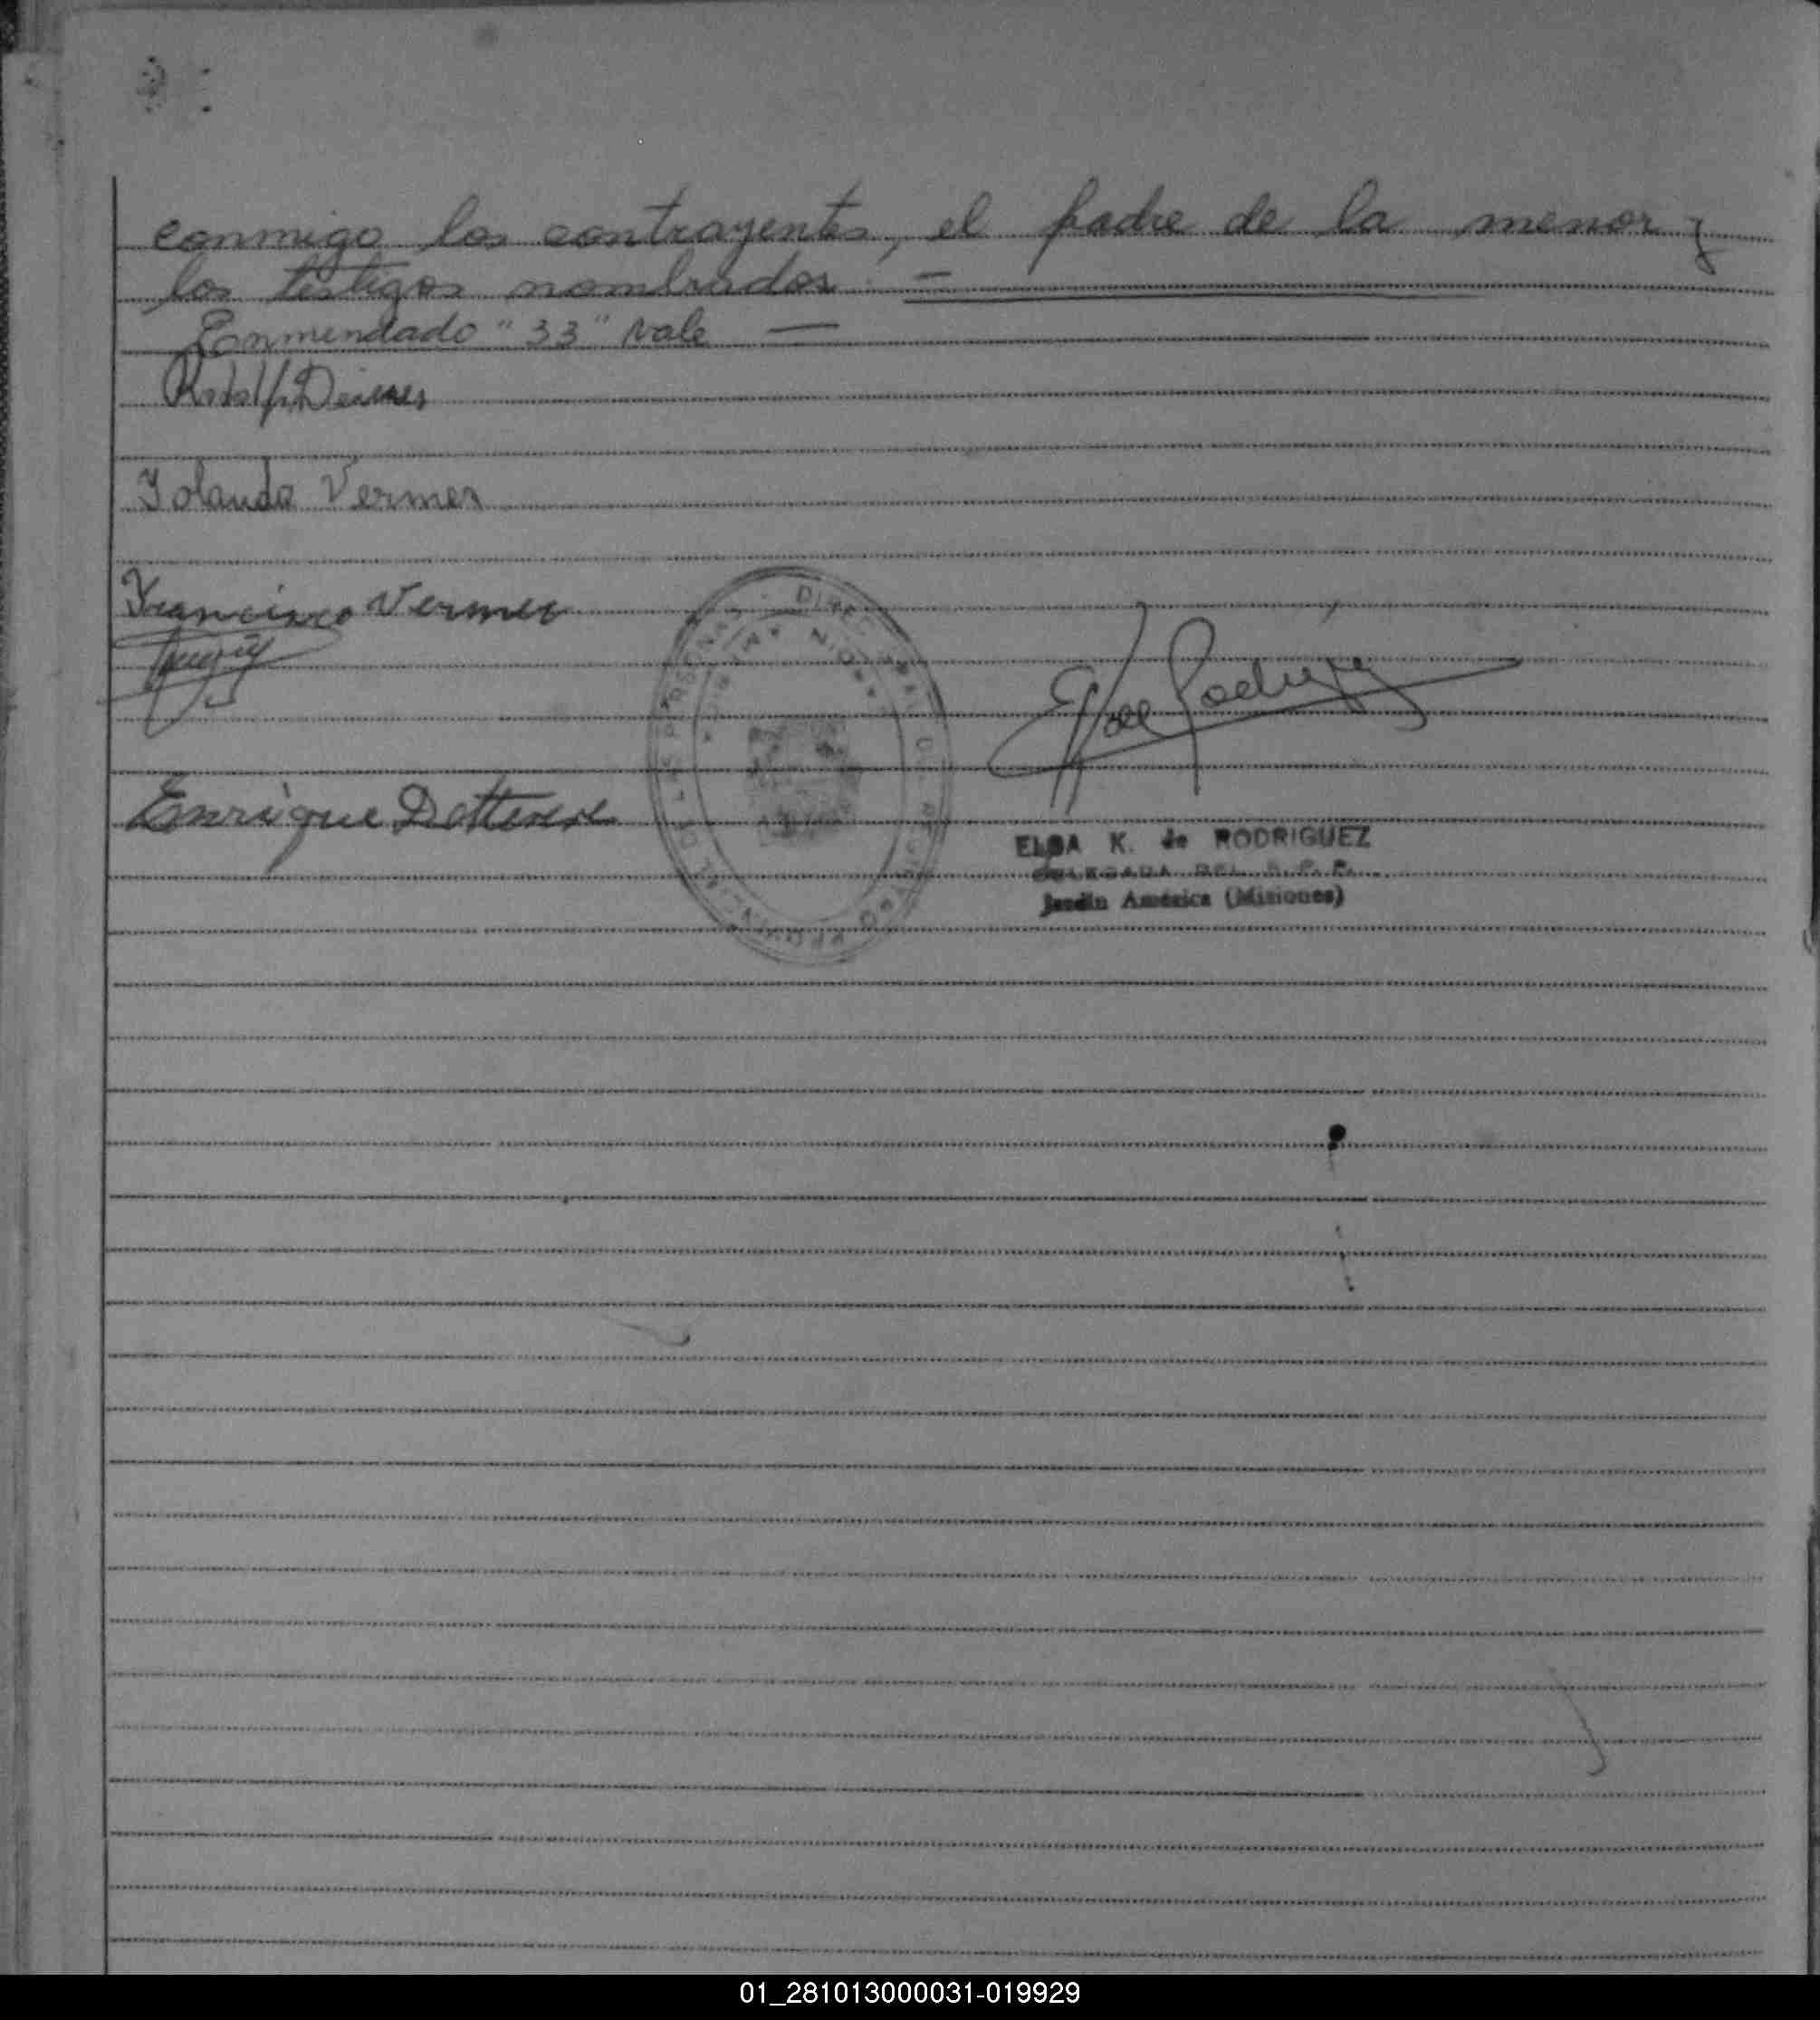 conmigo los contrayentes, el padre de la menor y
los testigos nombrados. —
Enmendado "33" vale —
Rodolfo
Yolanda Vermer
Francisco Vermer
Enrique
Elba Rodriguez
ELBA K. de RODRIGUEZ
DELEGADA DEL R. P. P.
Jardin América (Misiones)
01_281013000031-019929